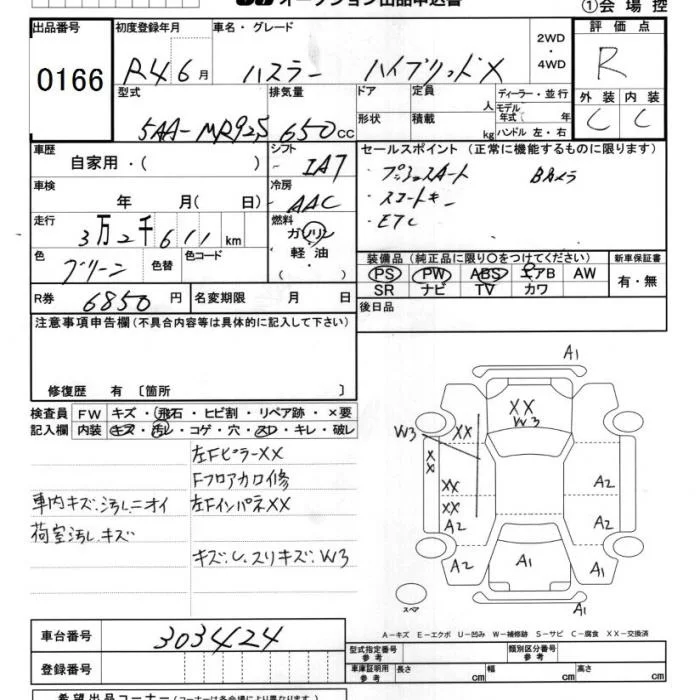 オークション出品申込書
①会場控
出品番号
0166
初度登録年月
R4 6月
車名・グレード
ハスラー ハイブリッドX
2WD
・
4WD
評価点
R
型式
5AA-MR92S
排気量
650cc
ドア
定員
人
ディーラー・並行
モデル年式( 年
形状
積載
kg
ハンドル 左・右
外装
内装
C
C
車歴
自家用・( )
シフト
IAT
セールスポイント (正常に機能するものに限ります)
・プッシュスタート Bカメラ
・スマートキー
・ETC
車検
年 月( 日)
冷房
AAC
走行
3万2千611km
燃料
ガソリン
軽油
・( )
色
グリーン
色替
色コード
装備品 (純正品に限り○をつけてください)
PS PW ABS エアB AW
SR ナビ TV カワ
新車保証書
有・無
R券
6850円
名変期限 月 日
後日品
注意事項申告欄(不具合内容等は具体的に記入して下さい)
修復歴 有 〔箇所 〕
検査員記入欄
FW キズ・飛石・ヒビ割・リペア跡・×要
内装 キズ・汚レ・コゲ・穴・スレ・キレ・破レ
左FピラーXX
Fフロアカロ修
車内キズ、汚レ、ニオイ
左FインパネXX
荷室汚レ、キズ
キズ、C、スリキズ、W3
A1
XX
W3
W3
XX
XX
XX
XX
A2
A2
A2
A2
A1
A1
A1
スペア
A-キズ E-エクボ U-凹み W-補修跡 S-サビ C-腐食 XX-交換済
車台番号
303424
登録番号
型式指定番号
参考
類別区分番号
参考
車庫証明用
参考
長さ cm
幅 cm
高さ cm
希望出品コーナー(コーナーは各会場により異なります)